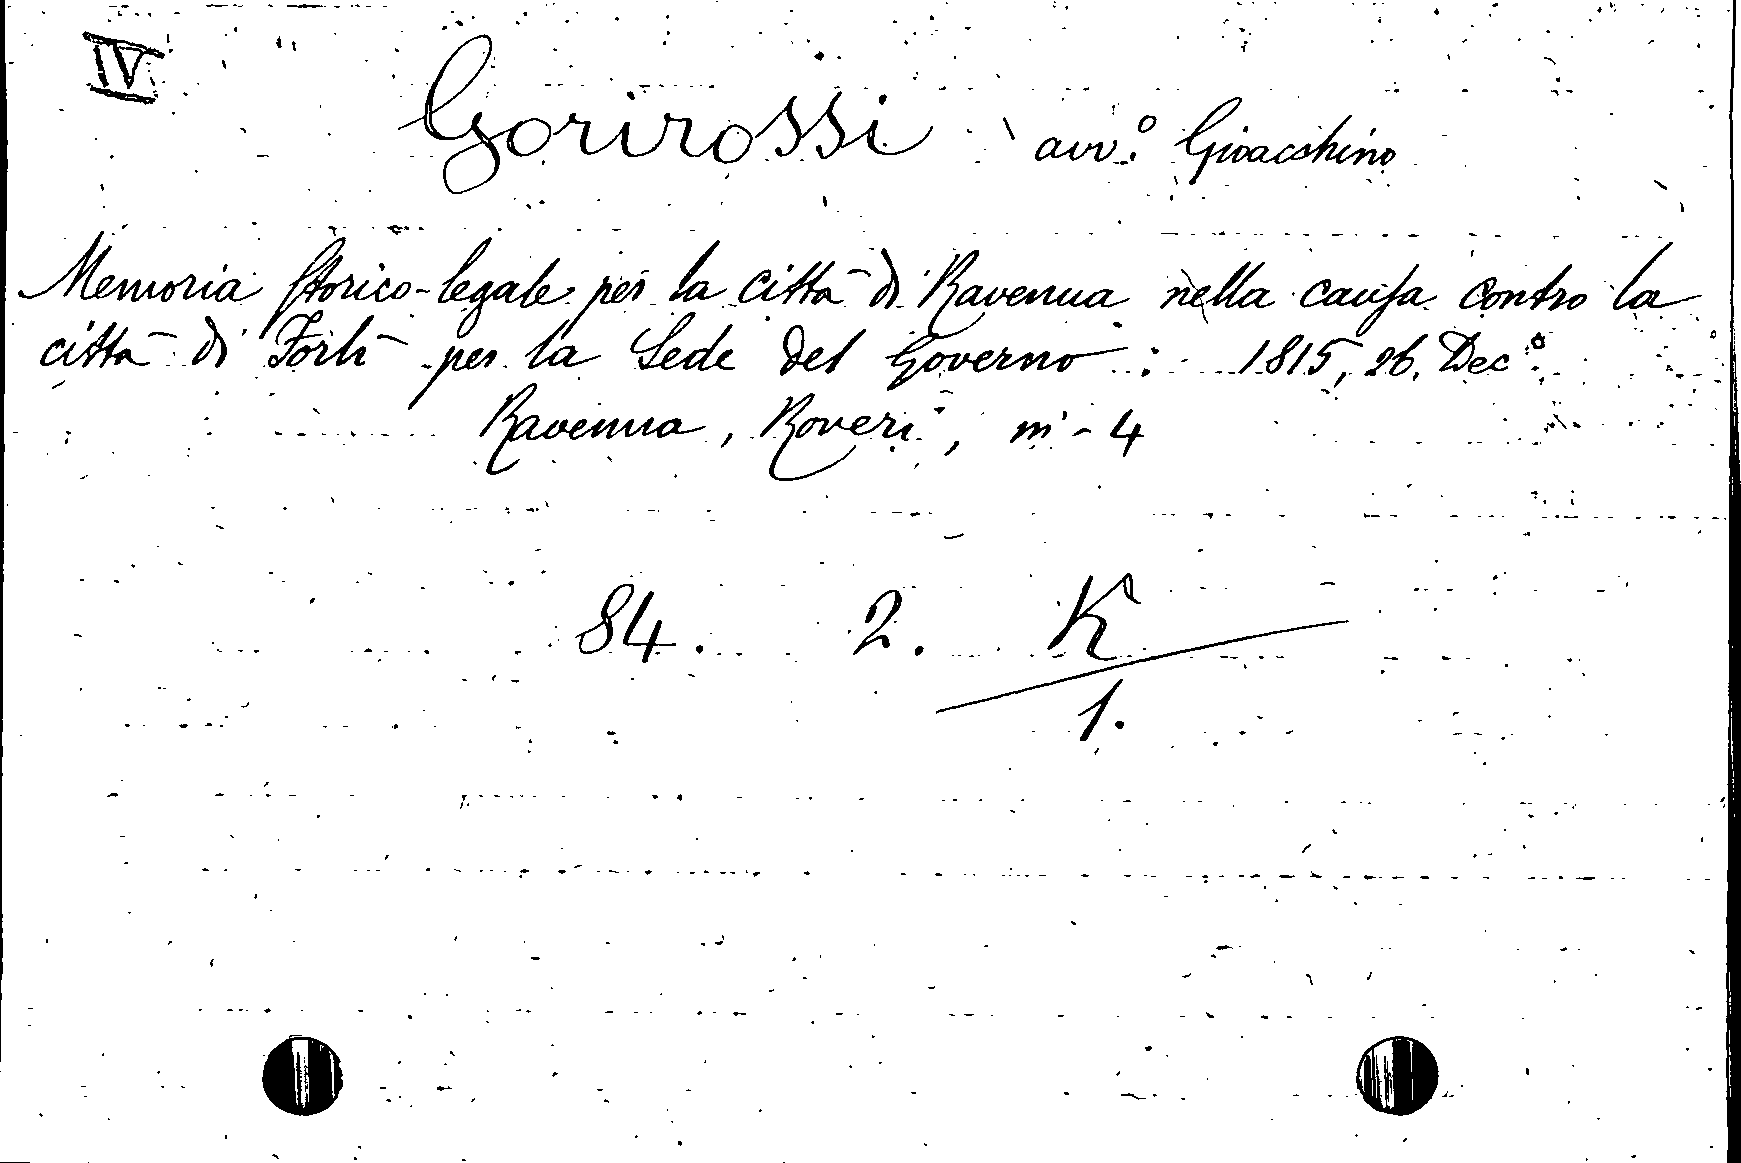 IV
Gorirossi avv.º Gioacchino
Memoria storico-legale per la città di Ravenna nella causa contro la
città di Forlì per la Sede del Governo: 1815, 26. Decº.
Ravenna, Roveri, in-4
84. 2. K
1.